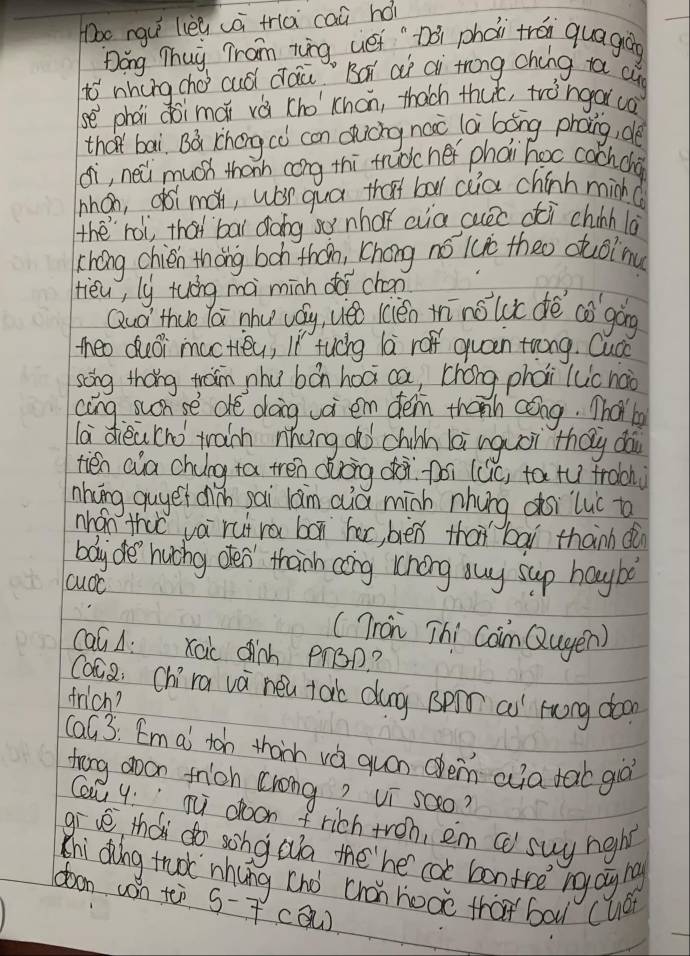 Đọc ngữ liệu và trả lời câu hỏi
Đặng Thuỳ Trâm từng viết "Đời phải trải qua giông
tố nhưng chớ cúi đầu". Bởi ai ai trong chúng ta cũng
sẽ phải đối mặt và khó khăn, thách thức, trở ngại và
thất bại. Bởi không có con đường nào là bằng phẳng, dễ
đi, nếu muốn thành công thì trước hết phải học cách chấp
nhận, đối mặt, vượt qua thất bại của chính mình. Có
thể nói, thất bại đáng sợ nhất của cuộc đời chính là
không chiến thắng bản thân, không nỗ lực theo đuổi mục
tiêu, lý tưởng mà mình đã chọn.
Quả thực là như vậy, việc kiên trì nỗ lực để cố gắng
theo đuổi mục tiêu, lí tưởng là rất quan trọng. Cuộc
sống thăng trầm như bản hoà ca, không phải lúc nào
cũng suôn sẻ dễ dàng và êm đềm thành công. Thất bại
là điều khó tránh nhưng đó chính là người thầy đầu
tiên của chúng ta trên đường đời. Đôi lúc, ta tự trách vì
những quyết định sai lầm của mình nhưng đôi lúc ta
nhận thức và rút ra bài học, biến thất bại thành đòn
bẩy để hướng đến thành công không suy sụp hay bỏ
cuộc
(Trần Thị Cẩm Quyên)
Câu 1: Xác định PTBĐ?
Câu 2: Chỉ ra và nêu tác dụng BPTT có trong đoạn
trích?
Câu 3: Em có tán thành với quan điểm của tác giả
trong đoạn trích không? Vì sao?
Câu 4: Từ đoạn trích trên, em có suy nghĩ
gì về thái độ sống của thế hệ các bạn trẻ ngày nay
khi đứng trước những khó khăn hoặc thất bại (viết
đoạn văn từ 5-7 câu)